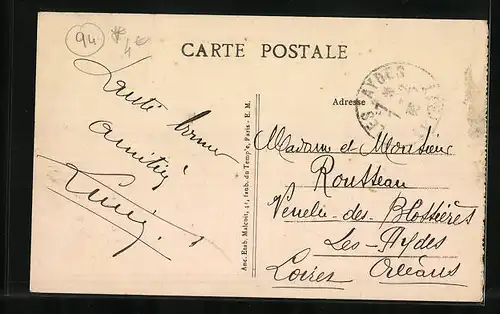 94
4 €
CARTE POSTALE
Adresse
LES AYDES
Santé bonne
amitié
Anc. Etab. Malcuit, 41, faub. du Temple, Paris - E. M.
Madame et Monsieur
Rousseau
Venelle-des-Blossières
Les-Aydes
Loiret Orléans